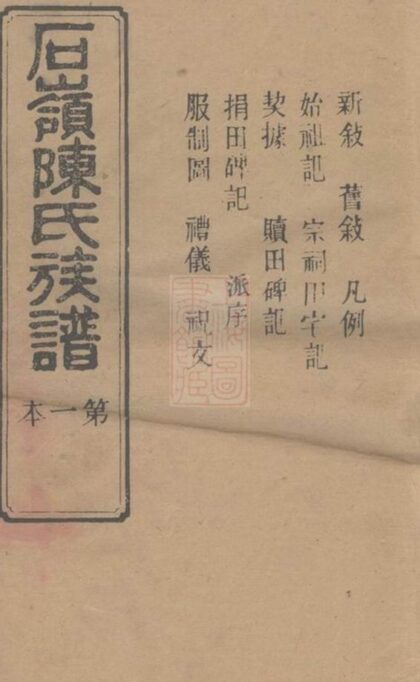 新敍 舊敍 凡例
始祖記 宗祠用字記
契據 贖田碑記
捐田碑記 派序
服制圖 禮儀 祝文
石嶺陳氏族譜
第一本